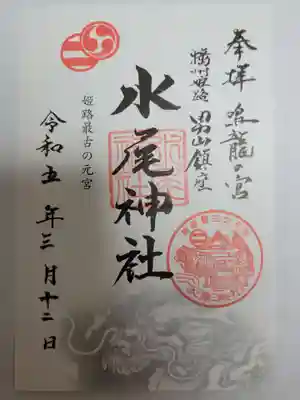 奉拝
鳴龍の宮
播州姫路
男山鎮座
水尾神社
姫路最古の元宮
令和五年三月十二日